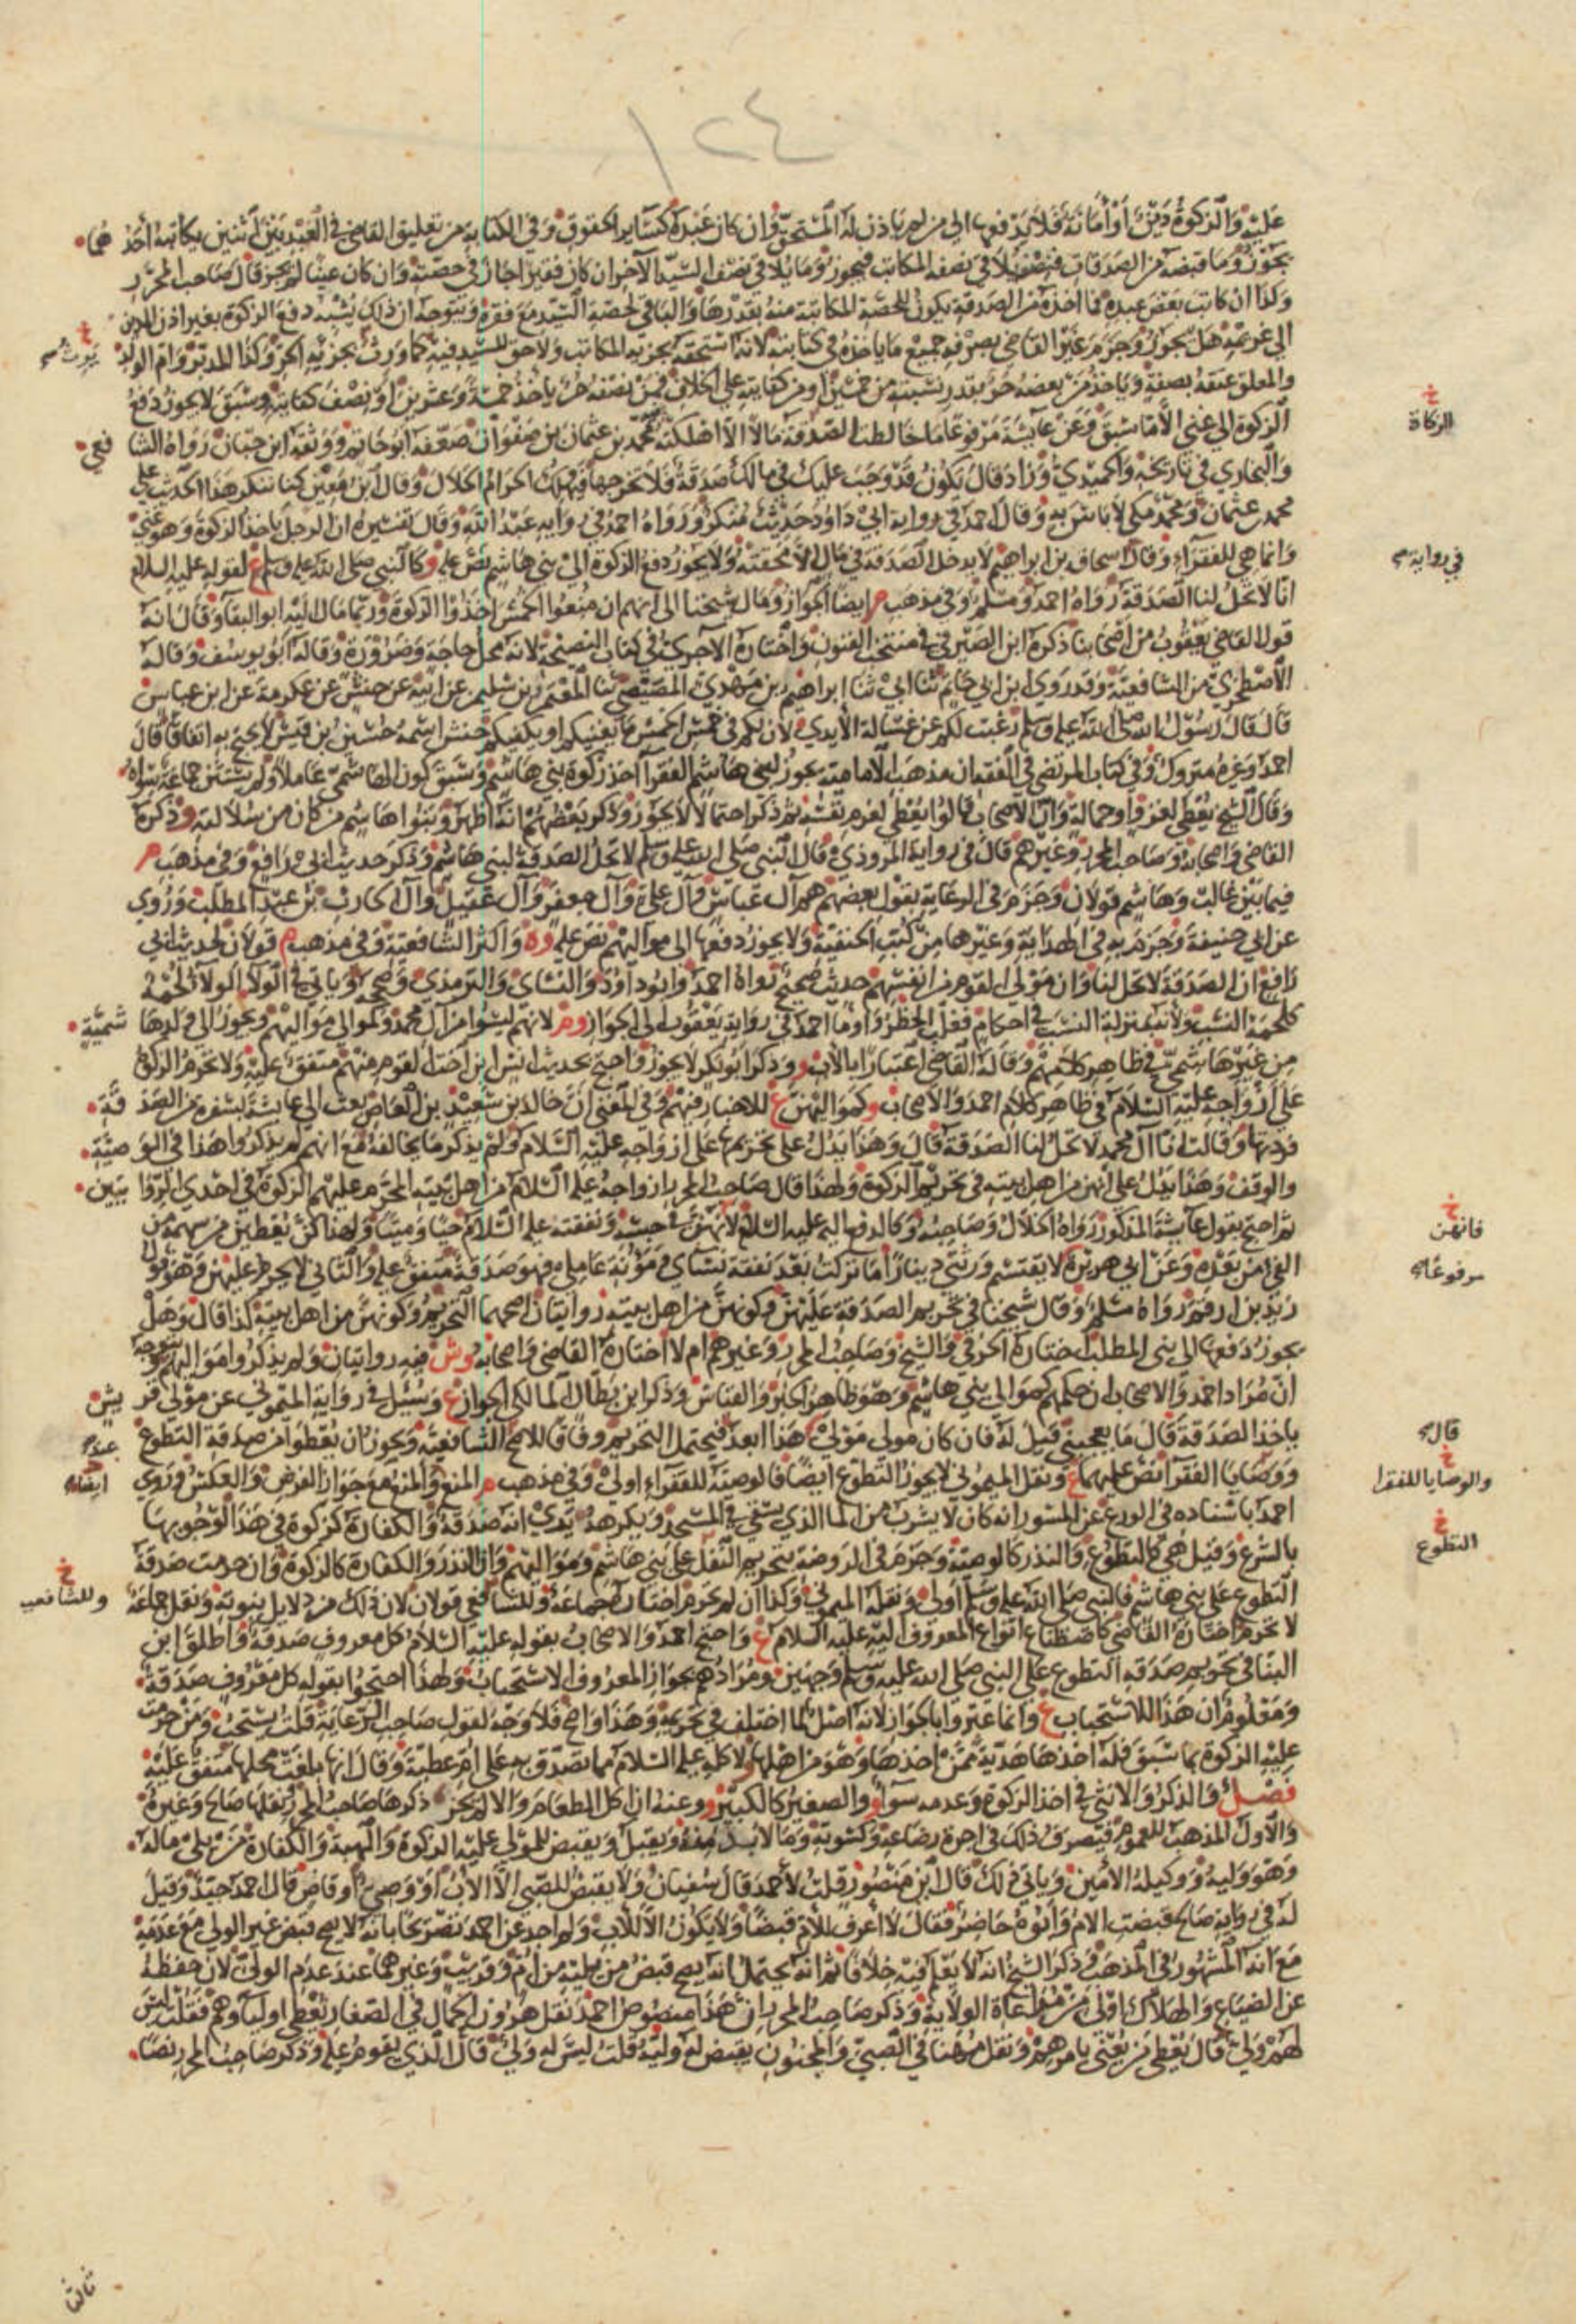 ١٢٤
عليه والزكوة دين أو أمانة فلا يدفعها الى من لم ياذن له المستحق وان كان عبده كسائر الحقوق وفي الكتابة من تعليق القاضي في العبد بين اثنين يكاتبه أحدهما
يجوز وما قبضه من الصدقات فنصفه يلاقي نصفه المكاتب فيجوز وما يلاقي نصف السيد الآخر ان كان فقيرا جاز في حصته وان كان غنيا لم يجز قال صاحب المحرر
وكذا ان كاتب بعض عبده فما اخذه من الصدقة يكون للحصة المكاتبة منه بقدرها والباقي لحصة السيد مع فقره ويتوجه ان ذلك يشبه دفع الزكوة بغير اذن المدين
الى غريمه هل يجوز وجزم غير القاضي بصرفه جميع ما ياخذه في كتابته لانه استحقه بجزئه المكاتب ولا حق للسيد فيه كما ورث بجزئه الحر وكذا المدبر وام الولد
والمعلق عتقه بصفة وياخذ من بعضه حر بقدر نسبته من خمسين او من كفايته على الخلاف فمن نصفه حر ياخذ خمسة وعشرين او نصف كفايته وسبق لا يجوز دفع
الزكوة الى غني الا ما سبق وعن عايشة مرفوعا ما خالطت الصدقة مالا الا اهلكته محمد بن عثمان بن صفوان ضعفه ابو حاتم ووثقه ابن حبان رواه الشافعي
والبخاري في تاريخه والحميدي وزاد قال يكون قد وجب عليك في مالك صدقة فلا تخرجها فيهلك الحرام الحلال وقال ابن معين كنا ننكر هذا الحديث على
محمد بن عثمان ومحمد مكي لا باس به وقال احمد في رواية ابي داود حديث منكر ورواه احمد في رواية عبد الله وقال تفسيره ان الرجل ياخذ الزكوة وهو غني
وانما هي للفقراء وقال اسحاق بن ابراهيم لا يدخل الصدقة في مال الا محقته ولا يجوز دفع الزكوة الى بني هاشم نص عليه و كالنبي صلى الله عليه وسلم ع لقوله عليه السلام
انا لا تحل لنا الصدقة رواه احمد ومسلم وفي مذهب م ايضا الجواز ومال شيخنا الى انهم ان منعوا الخمس اخذوا الزكوة وربما مال اليه ابو البقاء وقال انه
قول القاضي يعقوب من اصحابنا ذكره ابن الصيرفي في منتخب الفنون واختاره الآجري في كتاب النصيحة لانه محل حاجة وضرورة وقاله ابو يوسف وقاله
الاصطخري من الشافعية وقد روى ابن ابي حاتم ثنا ابي ثنا ابراهيم بن مهدي المصيصي ثنا المعتمر بن سليمن عن ابيه عن حنش عن عكرمة عن ابن عباس
قال قال رسول الله صلى الله عليه وسلم رغبت لكم عن غسالة الأيدي لأن لكم في خمس الخمس ما يغنيكم او يكفيكم حنش اسمه حسين بن قيس لا يحتج به اتفاقا قال
احمد وغيره متروك وفي كتاب المرتضى في الفقه ان مذهب الامامية يجوز لبني هاشم الفقراء اخذ زكوة بني هاشم وسبق كون الهاشمي عاملا ولم يستثن جماعة سواه
وقال الشيخ يعطى لغزو او حمالة وان الاصحاب قالوا يعطى لغرم نفسه ثم ذكر احتمالا لا يجوز وذكر بعضهم انه اظهر وبنوا هاشم من كان من سلالته و ذكره
القاضي واصحابه وصاحب المحرر وغيرهم قال في رواية المروذي قال النبي صلى الله عليه وسلم لا تحل الصدقة لبني هاشم وذكر حديث ابي رافع وفي مذهب م
فيما بين غالب وهاشم قولان وجزم في الرعاية بقول بعضهم هم آل عباس وآل علي وآل جعفر وآل عقيل وآل الحارث بن عبد المطلب وروي
عن ابي حنيفة وجزم به في الهداية وغيرها من كتب الحنفية ولا يجوز دفعها الى مواليهم نص عليه وه واكثر الشافعية وفي مذهب م قولان لحديث ابي
رافع ان الصدقة لا تحل لنا وان مولى القوم من انفسهم حديث صحيح رواه احمد وابو داود والنساي والترمذي وصححه ويأتي في الولاء الولاء لحمة
كلحمة النسب ولأنه بمنزلة النسب في احكام فغلب الحظر واوما احمد في رواية يعقوب الى الجواز وم لانهم ليسوا من آل محمد وكموالي مواليهم ويجوز الى ولد هاشمية
من غير هاشمي في ظاهر كلامهم وقاله القاضي اعتبارا بالأب و وذكر ابو بكر لا يجوز واحتج بحديث انس ابن اخت القوم منهم متفق عليه ولا تحرم الزكوة
على ازواجه عليه السلام في ظاهر كلام احمد والاصحاب وكمواليهن ع للاخبار فيهم وفي المغني ان خالد بن سعيد بن العاص بعث الى عايشة بسفرة من الصدقة
فردتها وقالت انا آل محمد لا تحل لنا الصدقة قال وهذا يدل على تحريمها على ازواجه عليه السلام ولم يذكر ما يخالفه مع انهم لم يذكروا هذا في الوصية
والوقف وهذا يدل على انهن من اهل بيته في تحريم الزكوة ولهذا قال صاحب المحرر ازواجه عليه السلام من اهل بيته المحرم عليهم الزكوة في احدى الروايتين
ثم احتج بقول عايشة المذكور رواه الخلال وصاحبه وكالدفع اليه عليه السلام لانهن في حبسه ونفقته عليه السلام حيا وميتا ولهذا كن يعطين من سهمه من
الفي من بعده وعن ابي هريرة لا يقتسم ورثتي دينارا ما تركت بعد نفقة نساي ومؤنة عاملي فهو صدقة متفق عليه والثاني لا يحرم عليهن وهو قول
زيد بن ارقم رواه مسلم وقال شيخنا في تحريم الصدقة عليهن وكونهن من اهل بيته روايتان اصحهما التحريم وكونهن من اهل بيته كذا قال وهل
يجوز دفعها الى بني المطلب اختاره الخرقي والشيخ وصاحب المحرر وغيرهم ام لا اختاره القاضي واصحابه وش فيه روايتان ولم يذكروا مواليهم ويتوجه
ان مراد احمد والاصحاب ان حكمهم كموالي بني هاشم وهو ظاهر الخبر والقياس وذكر ابن بطال المالكي الجواز ع وسئل في رواية الميموني عن مولى قريش
ياخذ الصدقة قال ما يعجبني قيل له فان كان مولى مولى قال هذا ابعد فيحتمل التحريم وفاقا للاصح للشافعية ويجوز ان يعطوا من صدقة التطوع
ووصايا الفقراء نص عليهما ع ونقل الميموني لا يجوز التطوع ايضا فالوصية للفقراء اولى وفي مذهب م المنع والمنع مع جواز الفرض والعكس وروى
احمد باسناده في الورع عن المسور انه كان لا يشرب من الماء الذي يسقى في المسجد ويكرهه يرى انه صدقة والكفارة كزكوة في هذا لوجوبها
بالشرع وقيل هي كالتطوع والنذر كالوصية وجزم في الروضة بتحريم النفل على بني هاشم ومواليهم وان النذر والكفارة كالزكوة وان حرمت صدقة
التطوع على بني هاشم فالنبي صلى الله عليه وسلم اولى ونقله الميموني وكذا ان لم تحرم اختاره جماعة وللشافعي قولان لان ذلك من دلايل نبوته ونقل جماعة
لا تحرم اختاره القاضي كاصطناع انواع المعروف اليه عليه السلام ع واحتج احمد والاصحاب بقوله عليه السلام كل معروف صدقة واطلق ابن
البنا في تحريم صدقة التطوع على النبي صلى الله عليه وسلم وجهين ومرادهم بجواز المعروف الاستحباب ولهذا احتجوا بقوله كل معروف صدقة
ومعلوم ان هذا للاستحباب ع وانما عبروا بالجواز لانه اصل لما اختلف في تحريمه وهذا واضح فلا وجه لقول صاحب الرعاية قلت يستحب ومن حرمت
عليه الزكوة بما سبق فله اخذها هدية ممن اخذها وهو من اهلها ولاكله عليه السلام مما تصدق به على ام عطية وقال انها بلغت محلها متفق عليه
فصل والذكر والانثى في اخذ الزكوة وعدمه سواء و والصغير كالكبير و وعنه ان اكل الطعام والا لم يجز ذكرها صاحب المحرر نقلها صالح وغيره
والاول المذهب للعموم فيصرف ذلك في اجرة رضاعه وكسوته وما لا بد منه ويقبل ويقبض للمولى عليه الزكوة والهبة والكفارة من يلي ماله
وهو وليه ووكيله الامين وياتي في ذلك قال ابن منصور قلت لأحمد قال سفيان ولا يقبض للصبي الا الأب او وصي او قاض قال احمد جيد وقيل
له في رواية صالح قبضت الام وابوه حاضر فقال لا اعرف للأم قبضا ولا يكون الا للأب ولم اجد عن احمد تصريحا بانه لا يصح قبض غير الولي مع عدمه
مع انه المشهور في المذهب وذكر الشيخ انه لا يعلم فيه خلافا ثم انه يحتمل انه يصح قبض من يليه من ام وقريب وغيرهما عند عدم الولي لان حفظه
عن الضياع والهلاك اولى من مراعاة الولاية وذكر صاحب المحرر ان هذا منصوص احمد نقل هرون الحمال في الصغار يعطى اولياوهم فقلت ليس
لهم ولي قال يعطى من يعنى بامرهم ونقل مهنا في الصبي والمجنون يقبض له وليه قلت ليس له ولي قال الذي يقوم عليه وذكر صاحب المحرر نصا
خ
يرث
خ
الزكاة
في رواية
خ
فانهن
مرفوعا
قال
خ
والوصايا للفقرا
خ
التطوع
خ
وللشافعية
ثالثا